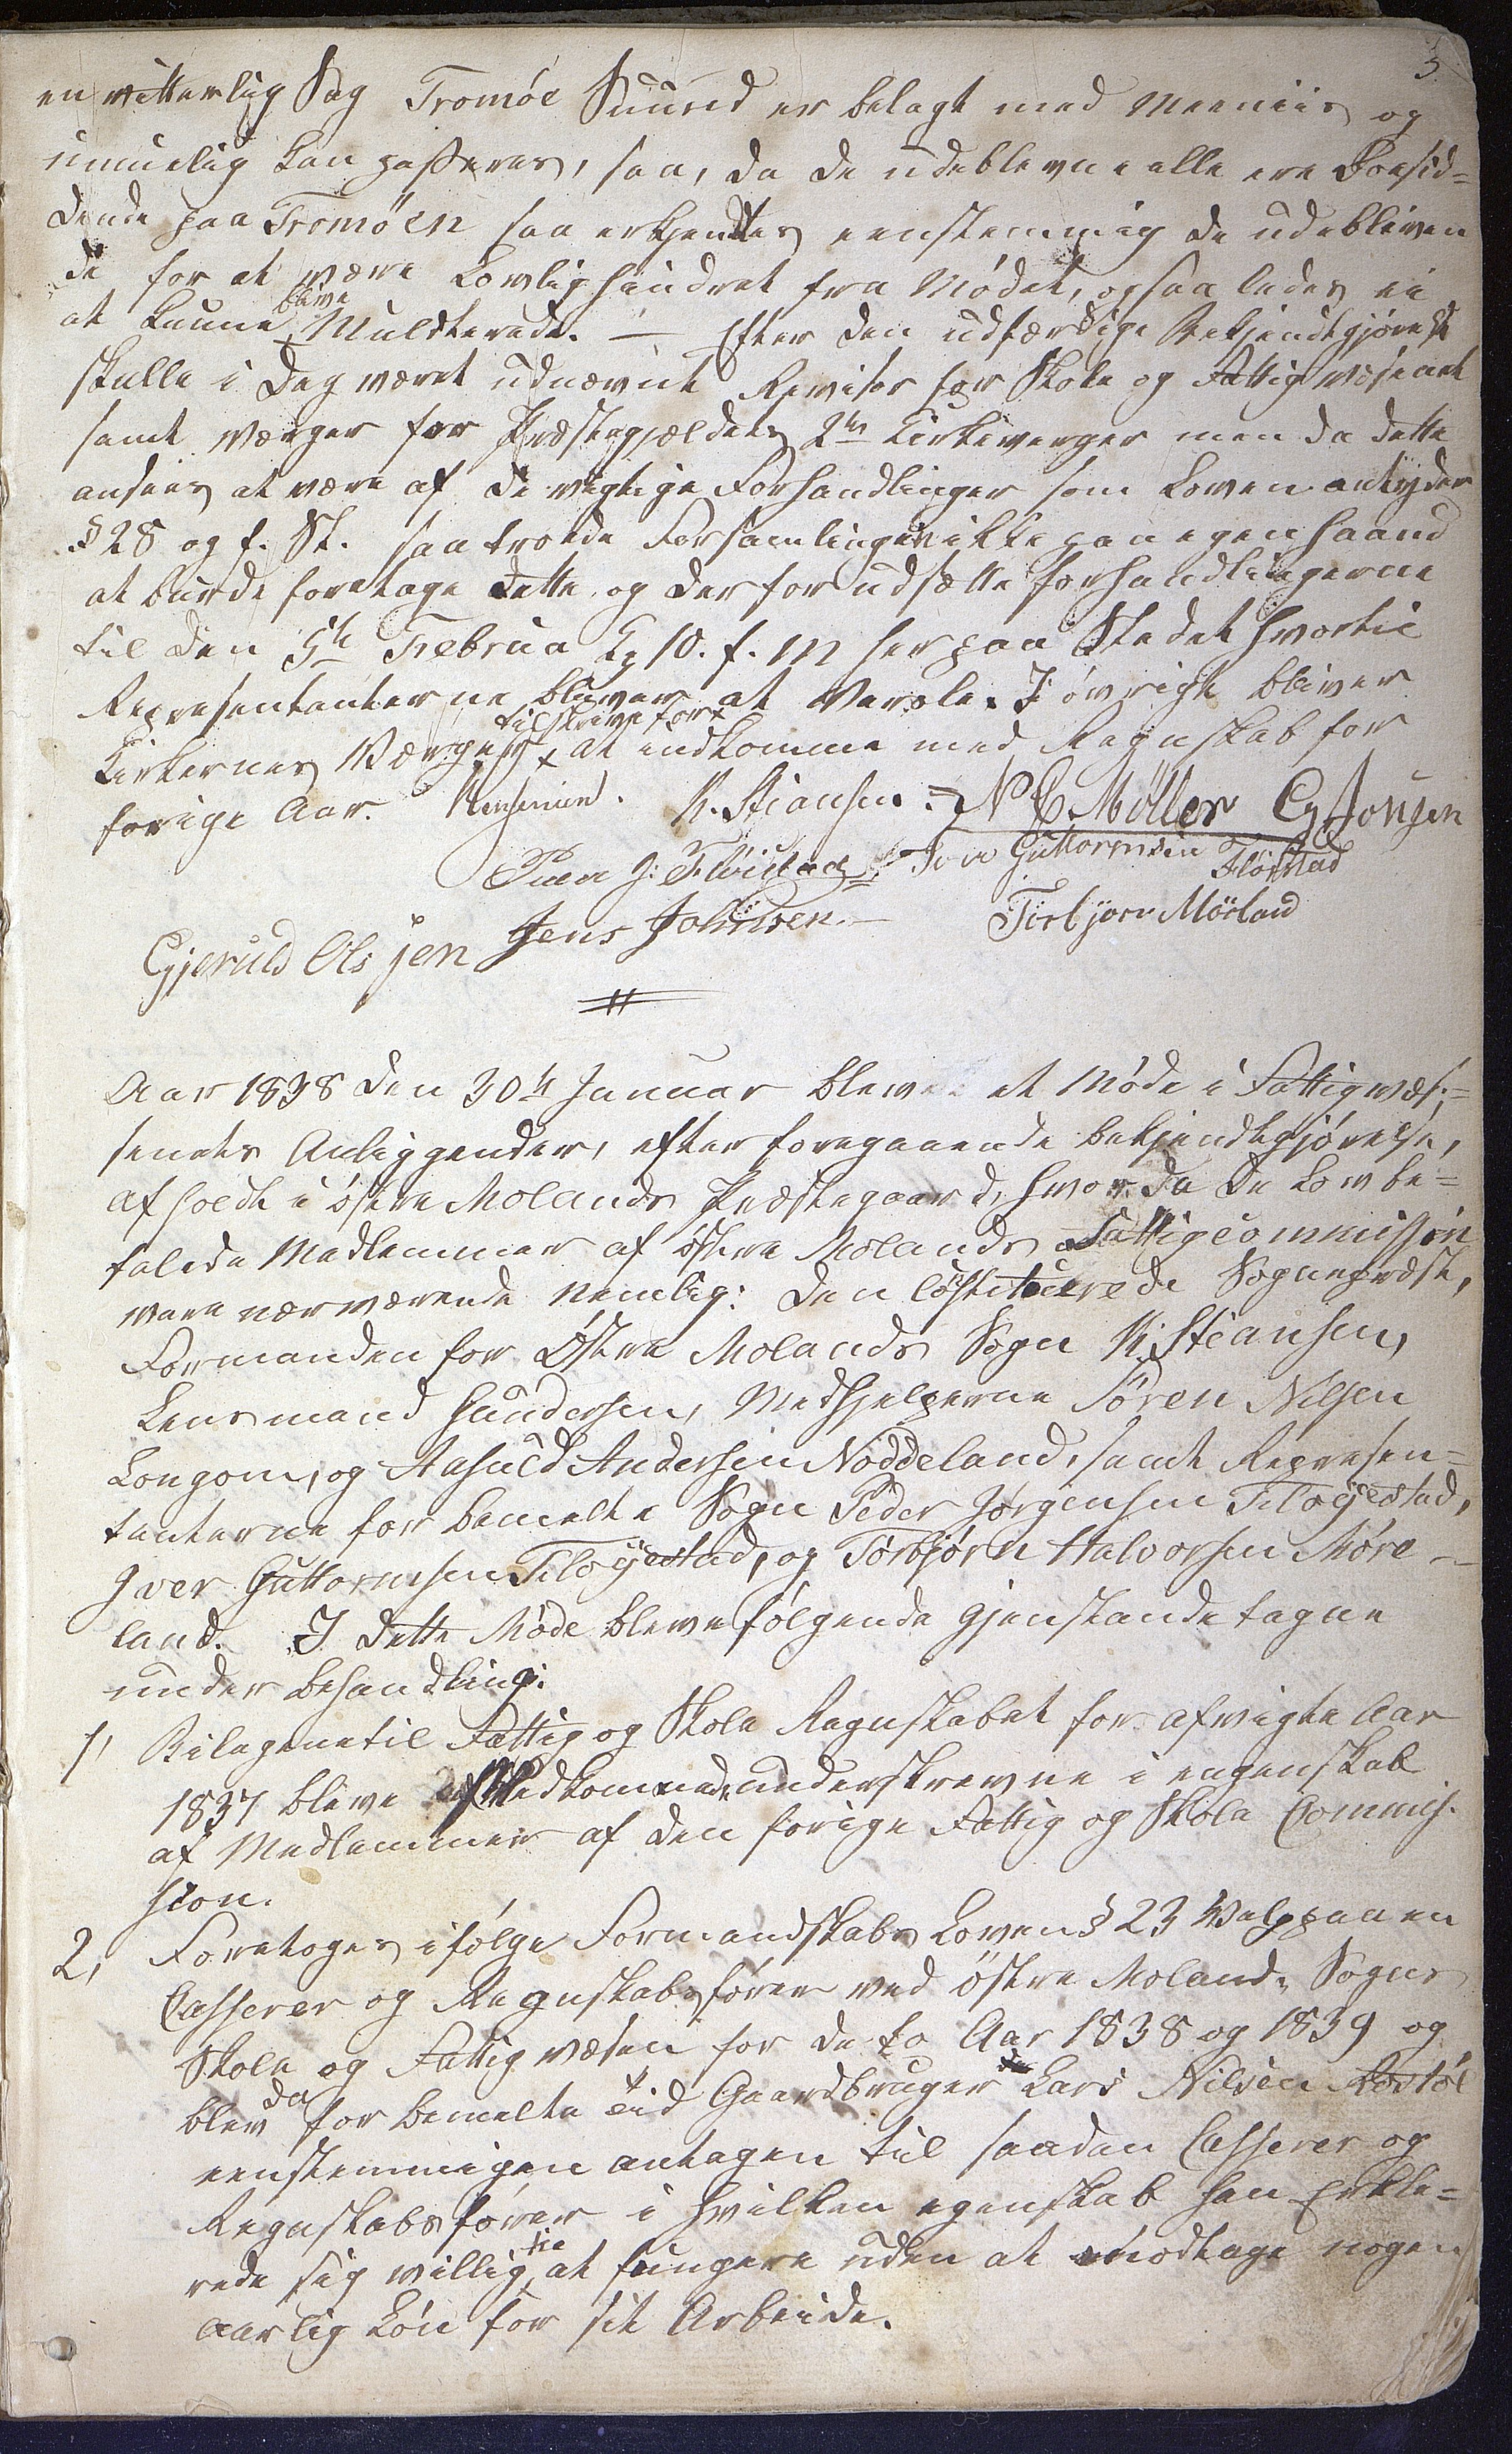 3
en vitterlig Sag Tromøe Suund er belagt med Meeniis og
umuelig kan passeres, saa, da de udeblevne alle ere Boesid=
dende paa Tromöen saa erkjendtes eenstemmig de udebleven
de for at være Lovlig hindret fra Mødet, ogsaaledes ei
at kunne blive Mulkterede. — Efter den udfærdige Bekjendtgjørelse
skulle i Dag været udnævnt Revisor for Skole og Fattigvæsenet
samt Værger for Præstegjældets 2de Kirkeverger men da dette
ansees at være af de vigtige Forhandlinger som Loven antyder
§ 28 og f. St. saa troede Forsamlingen ikke paa egen Haand
at burde foretage dette og derfor udsætte forhandlingerne
til den 5te Februa Kl 10. f. M her paa Stedet hvortil
Representanterne bliver at Varsle. I øvrigt bliver
Kirkernes Værger tilskrive for at indkomme med Regnskab for
forige Aar. K. Stiansen. N C. Møller G Jonsen
Peder J: Fløistad Iver Guttormsen Fløistad
Gjeruld Olsen Jens Johnsen. Torbjørn Möeland
Aar 1838 den 30te Januar bleve et Møde i Fattigvæs=
senets Anliggender, efter foregaaende bekjendtgjørelse,
afholdt i østre Molands Præstegaard, hvor da de Lovbe=
falede Medlemmer af østre Molands Fattigcommission
vare nærværende nemlig: den Constituerede Sognepræst,
Formanden for Østre Molands Sogn K. Stiansen,
Lensmand Gundersen, Medhjelperne Søren Nilsen
Longom, og Aasuld Andersen Noddeland, samt Represen=
tanterne for bemelte Sogn Peder Jørgensen Fløgestad,
Iver Guttormsen Fløgestad, og Torbjørn Halvorsen Møre
land. I dette Møde bleve følgende gjenstande tagne
under behandling:
1, Bilagene til Fattig og Skole Regnskabet for afvigte Aar
1837 bleve af Vedkommende underskrevne i engenskab
af Medlemmer af den forige Fattig og Skole Commis=
sion.
2, Foretoges ifølge Formandskabs Loven § 23 Valg paa en
Casserer og Regnskabsfører ved østre Molands Sogns
Skole og Fattigvæsen for de to Aar 1838 og 1839 og
blev da for bemelte tid Gaardbruger Lars Nilsen Røstøl
eenstemmigen antagen til saadan Casserer og
Regnskabsfører i hvilken egenskab han Erklæ=
rede sig villig til at fungere uden at modtage nogen
aarlig Løn for sit Arbeide.